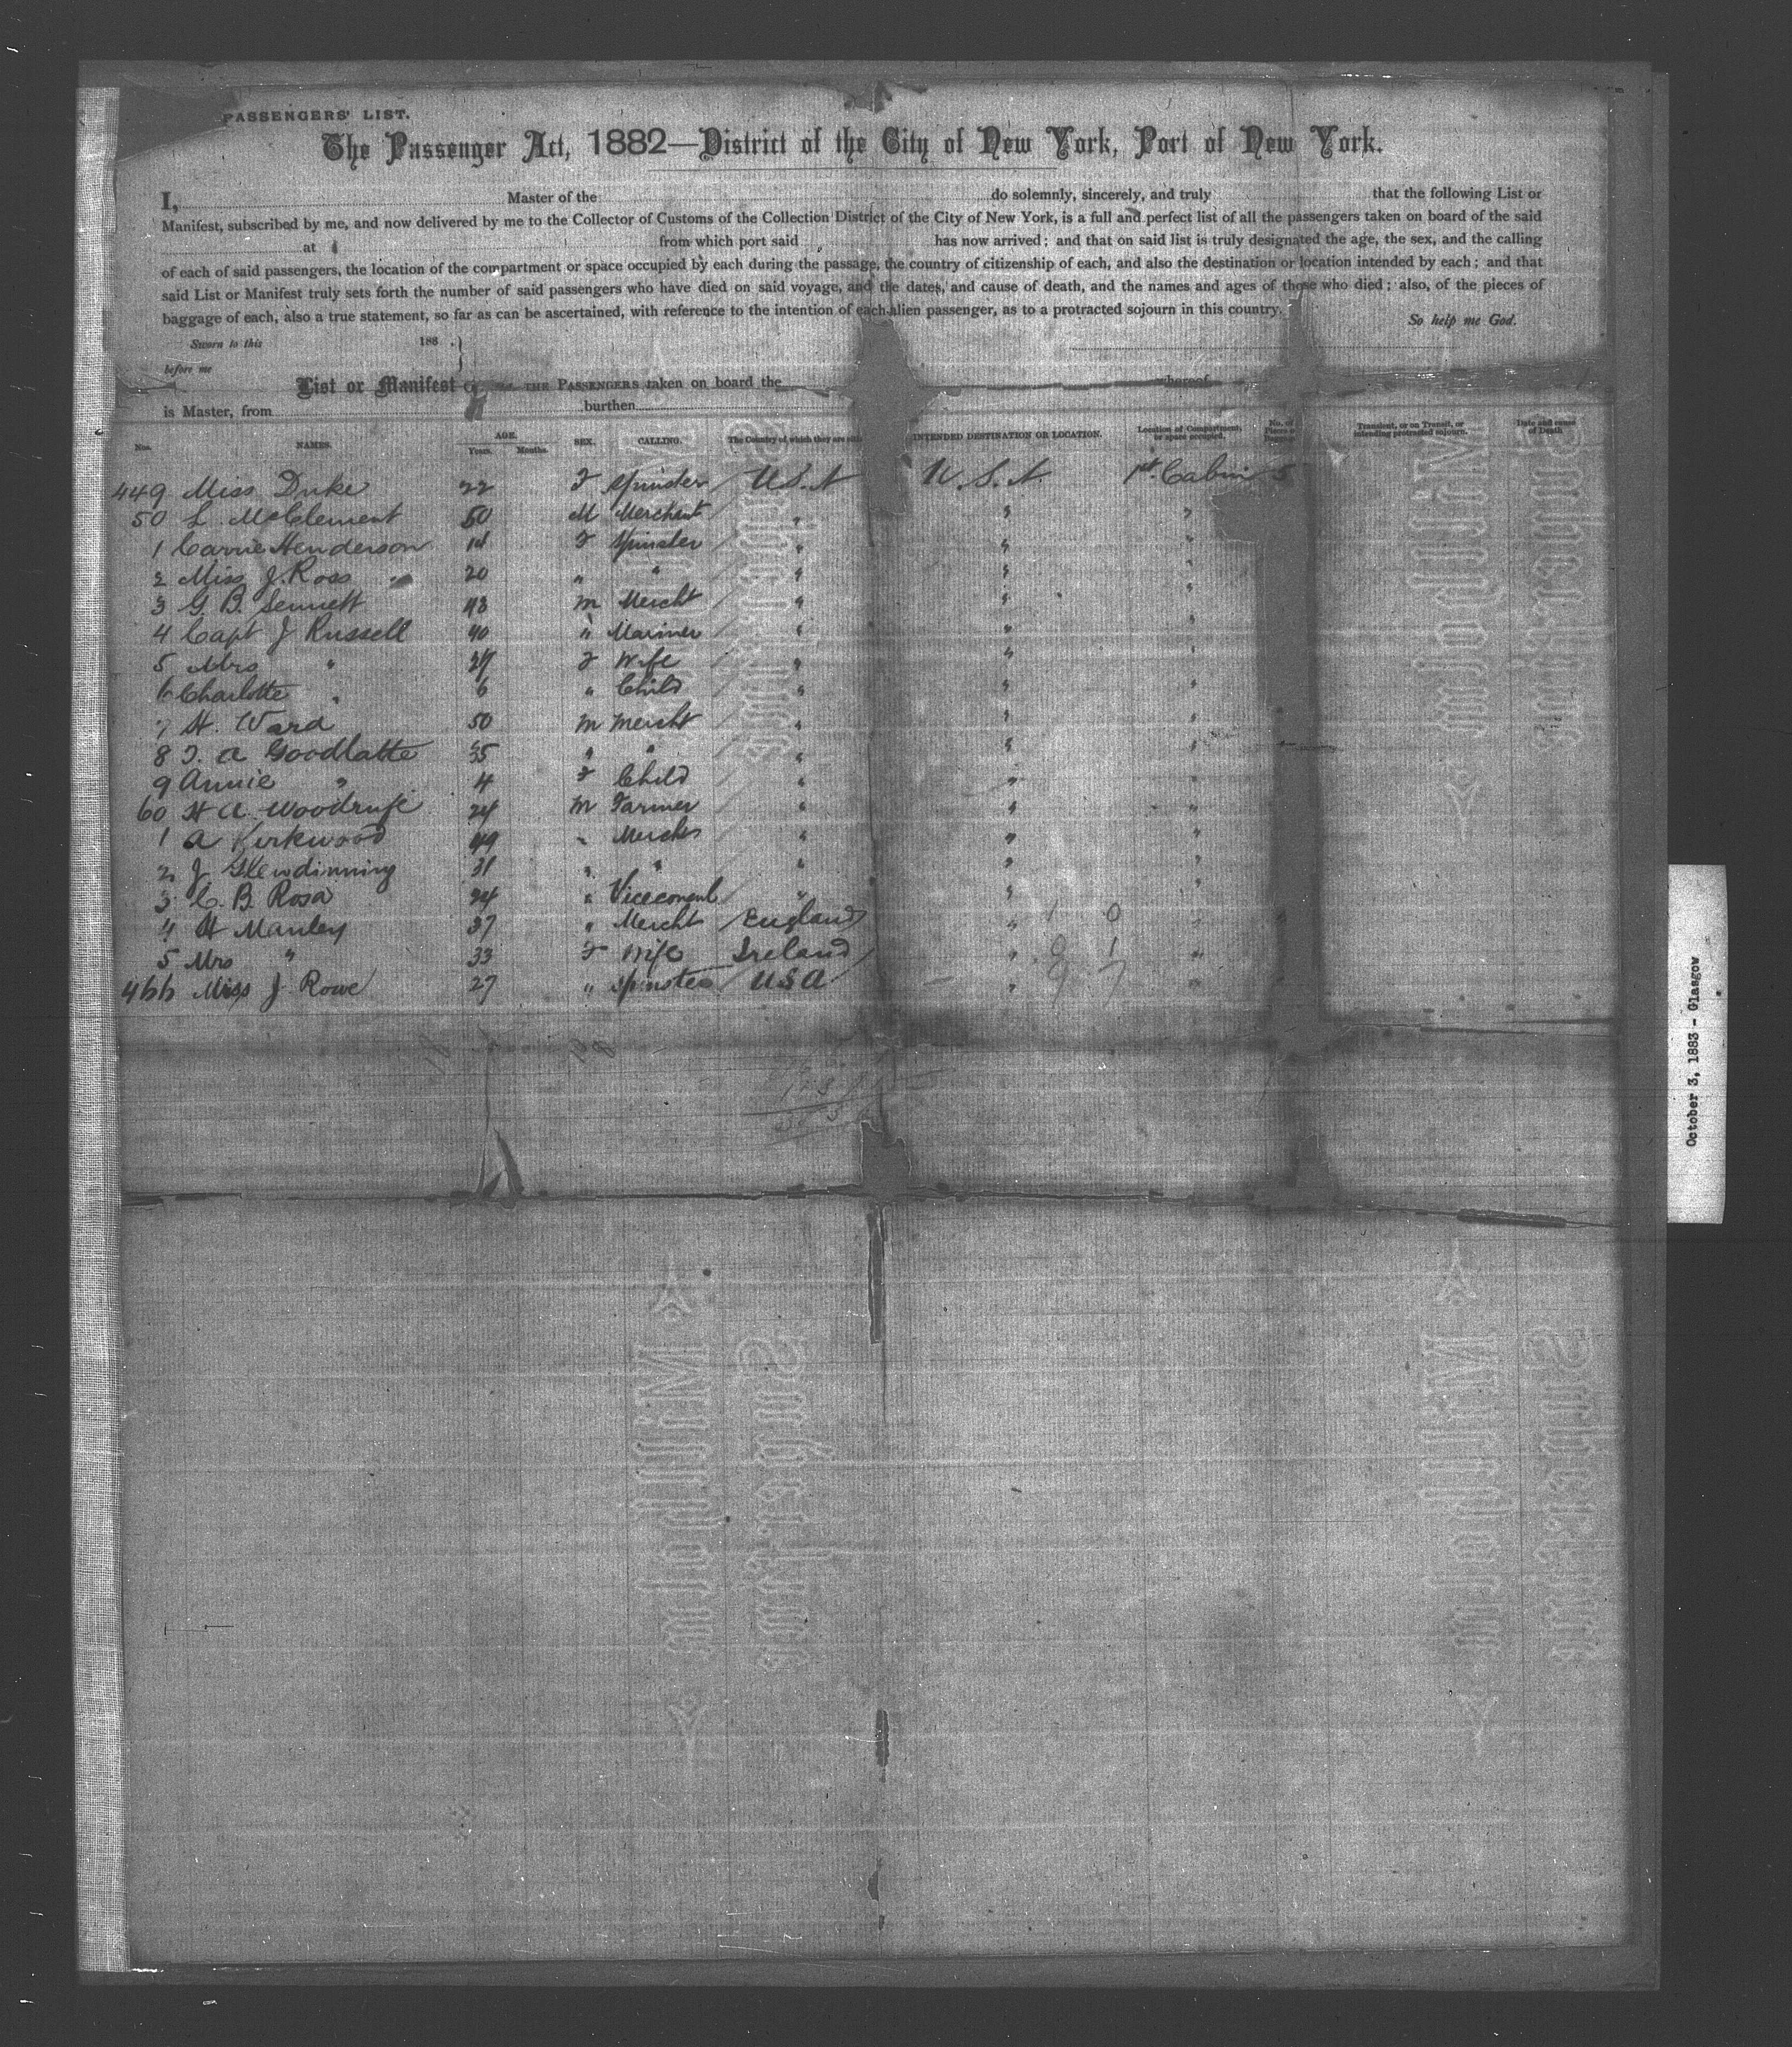 PASSENGERS' LIST.
The Passenger Act, 1882—District of the City of New York, Port of New York.
I, Master of the do solemnly, sincerely, and truly that the following List or
Manifest, subscribed by me, and now delivered by me to the Collector of Customs of the Collection District of the City of New York, is a full and perfect list of all the passengers taken on board of the said
at from which port said has now arrived; and that on said list is truly designated the age, the sex, and the calling
of each of said passengers, the location of the compartment or space occupied by each during the passage, the country of citizenship of each, and also the destination or location intended by each; and that
said List or Manifest truly sets forth the number of said passengers who have died on said voyage, and the dates, and cause of death, and the names and ages of those who died; also, of the pieces of
baggage of each, also a true statement, so far as can be ascertained, with reference to the intention of each alien passenger, as to a protracted sojourn in this country.
So help me God.
Sworn to this 186
before me
List or Manifest THE PASSENGERS taken on board the whereof
is Master, from burthen
Nos. NAMES. AGE. Years. Months. SEX. CALLING. The Country of which they are INTENDED DESTINATION OR LOCATION. Location of Compartment or space occupied. No. of Pieces Transient, or on Transit, or intending protracted sojourn. Date and cause of Death
449 Miss Duke 22 F Spinster / U.S.A U.S.A. 1st Cabin 5
50 L. McClement 50 M Merchant / " " "
1 Carrie Henderson 14 F Spinster / " " "
2 Miss J. Ross 20 " " / " " "
3 G. B. Sennett 43 M Mercht / " " "
4 Capt J Russell 40 " Mariner / " " "
5 Mrs " 27 F Wife / " " "
6 Charlotte " 6 " Child / " " "
7 H. Ward 50 M Mercht / " " "
8 T. A Goodlatte 35 " " / " " "
9 Annie " 4 F Child / " " "
60 H A Woodruff 24 M Farmer / " " "
1 A Kirkwood 49 " Mercht / " " "
2 J Glendinning 31 " " / " " "
3 C. B. Rosa 24 " Viceconsul / " " "
4 H Manley 37 " Mercht / England " 1 0 "
5 Mrs " 33 F Wife Ireland / " 0 1 "
466 Miss J. Rowe 27 " Spinster / USA " 9 7 "
October 3, 1883 - Glasgow
Millbourn
Superfine